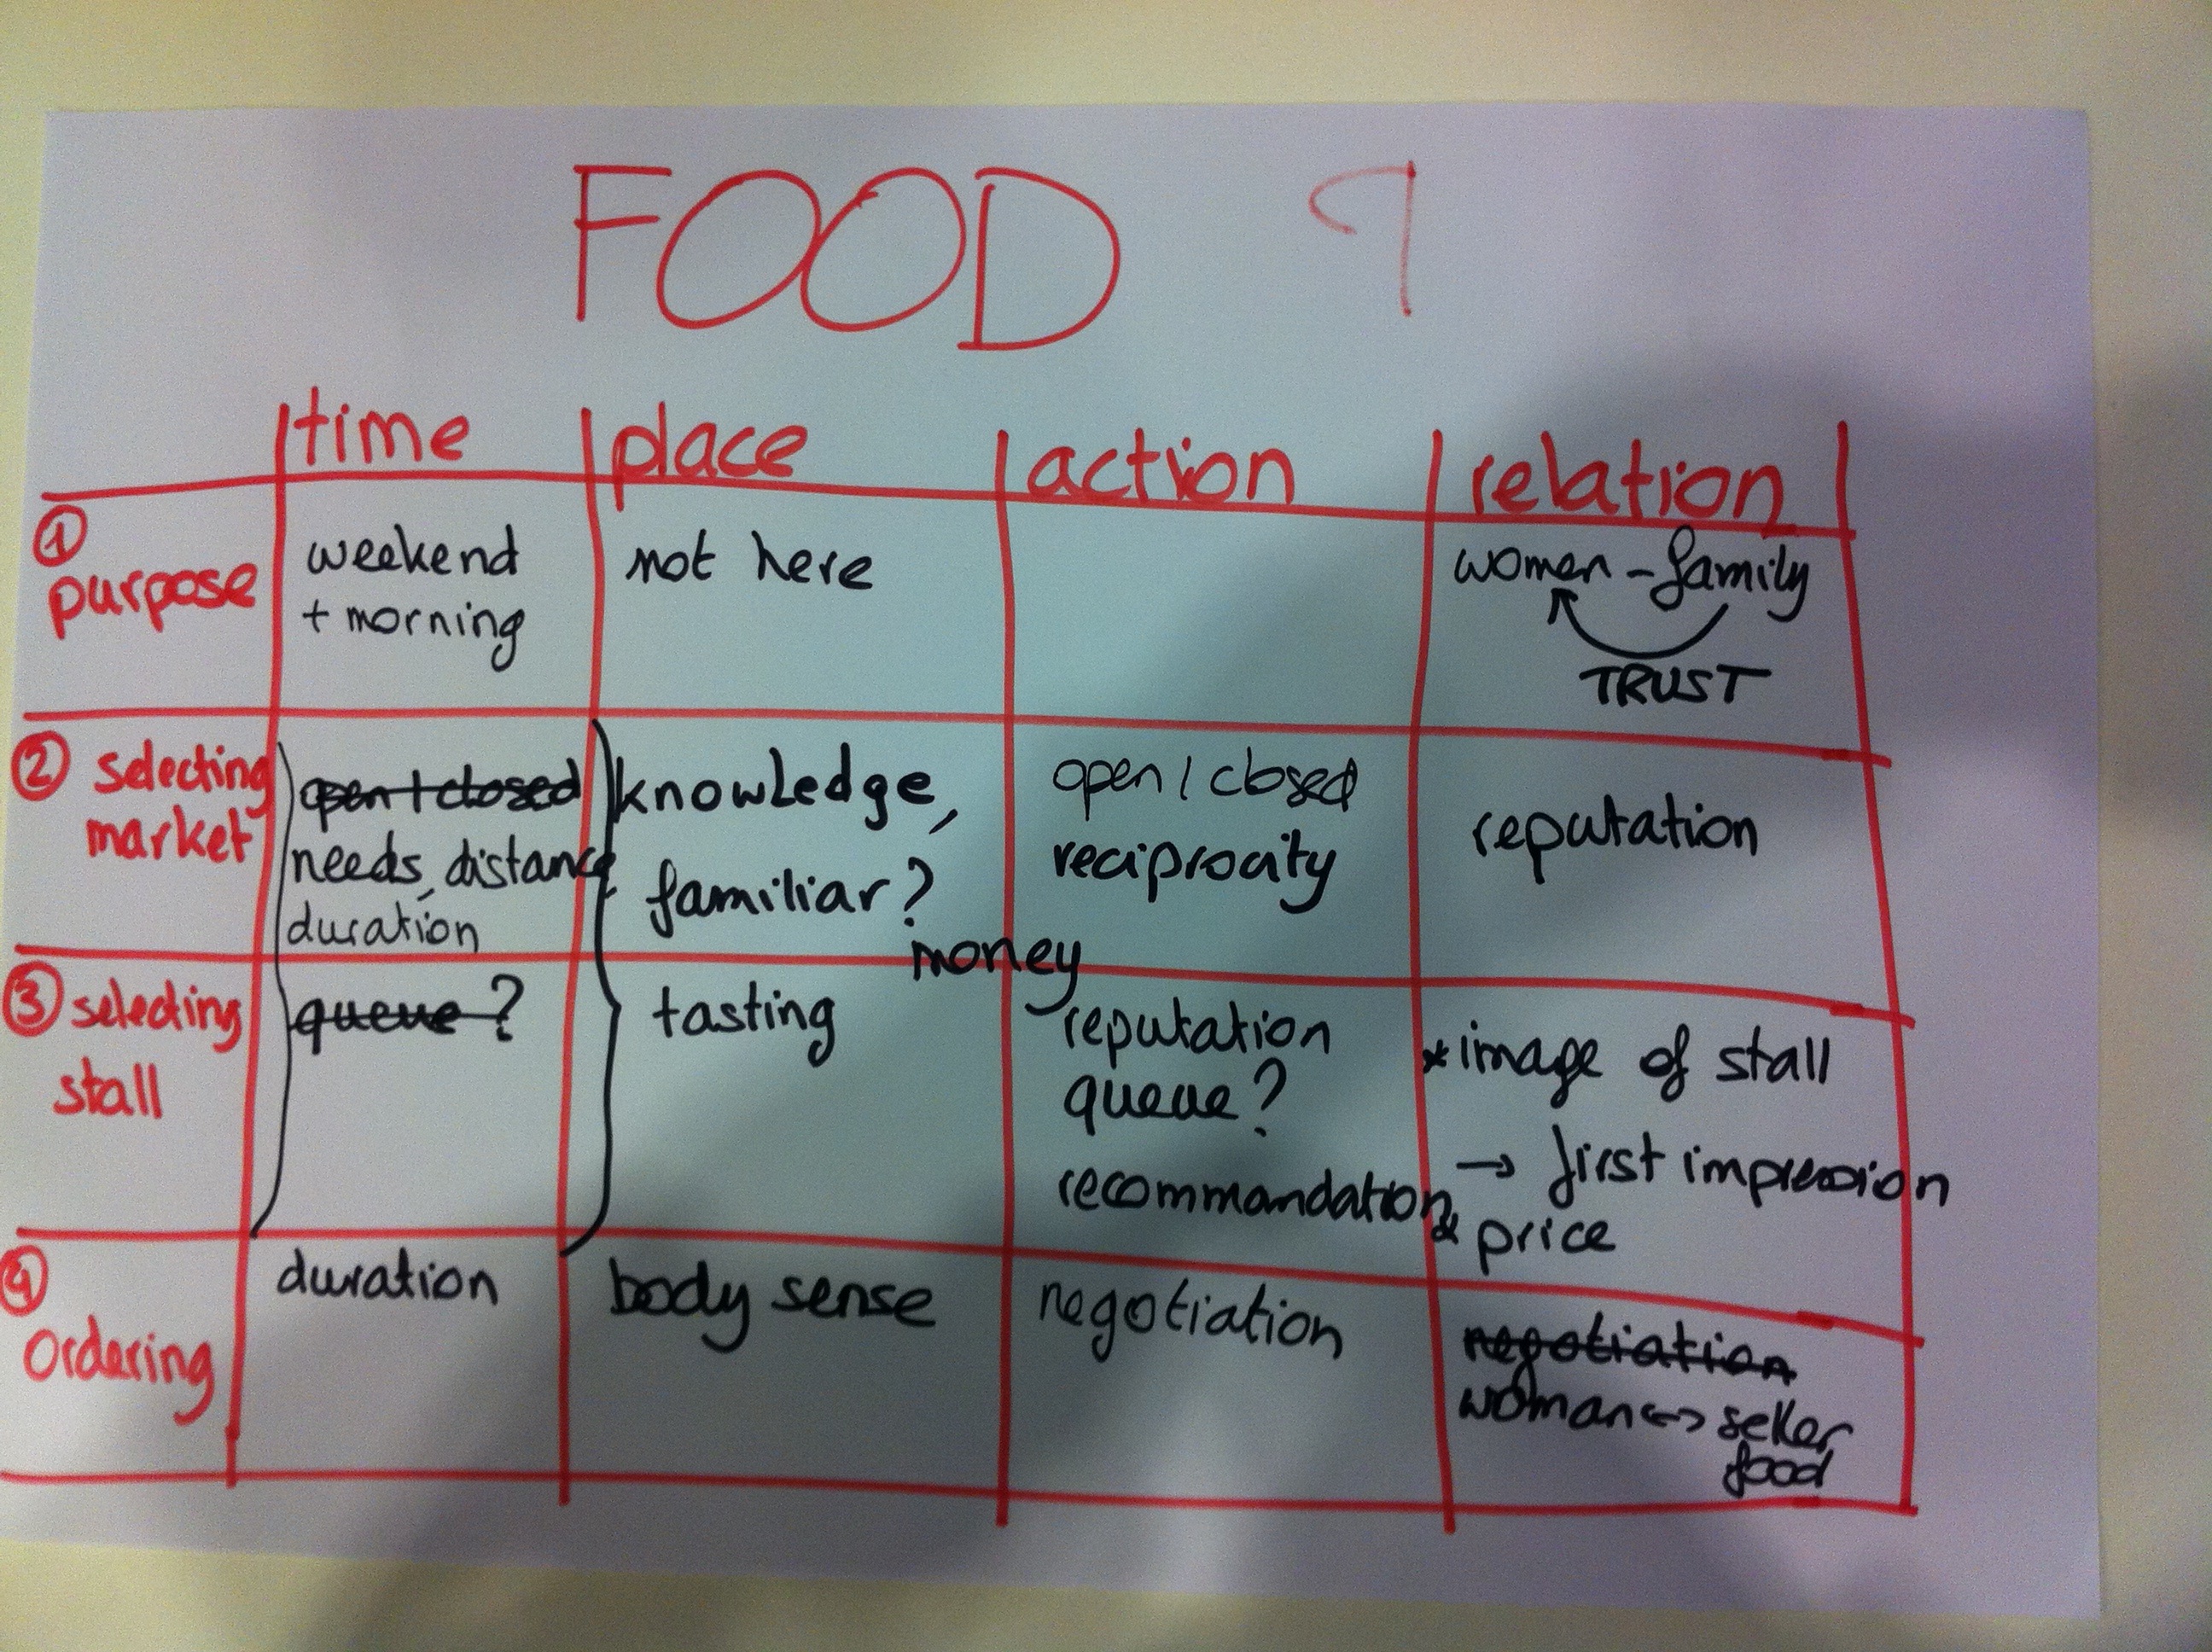 FOOD
time place action relation
① purpose
weekend
+ morning
not here
women - family
TRUST
② selecting
market
open / closed
needs, distance,
duration
knowledge,
familiar?
money
open / closed
reciprocity
reputation
③ selecting
stall
queue ?
tasting
reputation
queue?
recommandation
* image of stall
→ first impression
& price
④
Ordering
duration
body sense
negotiation
negotiation
woman <-> seller
food